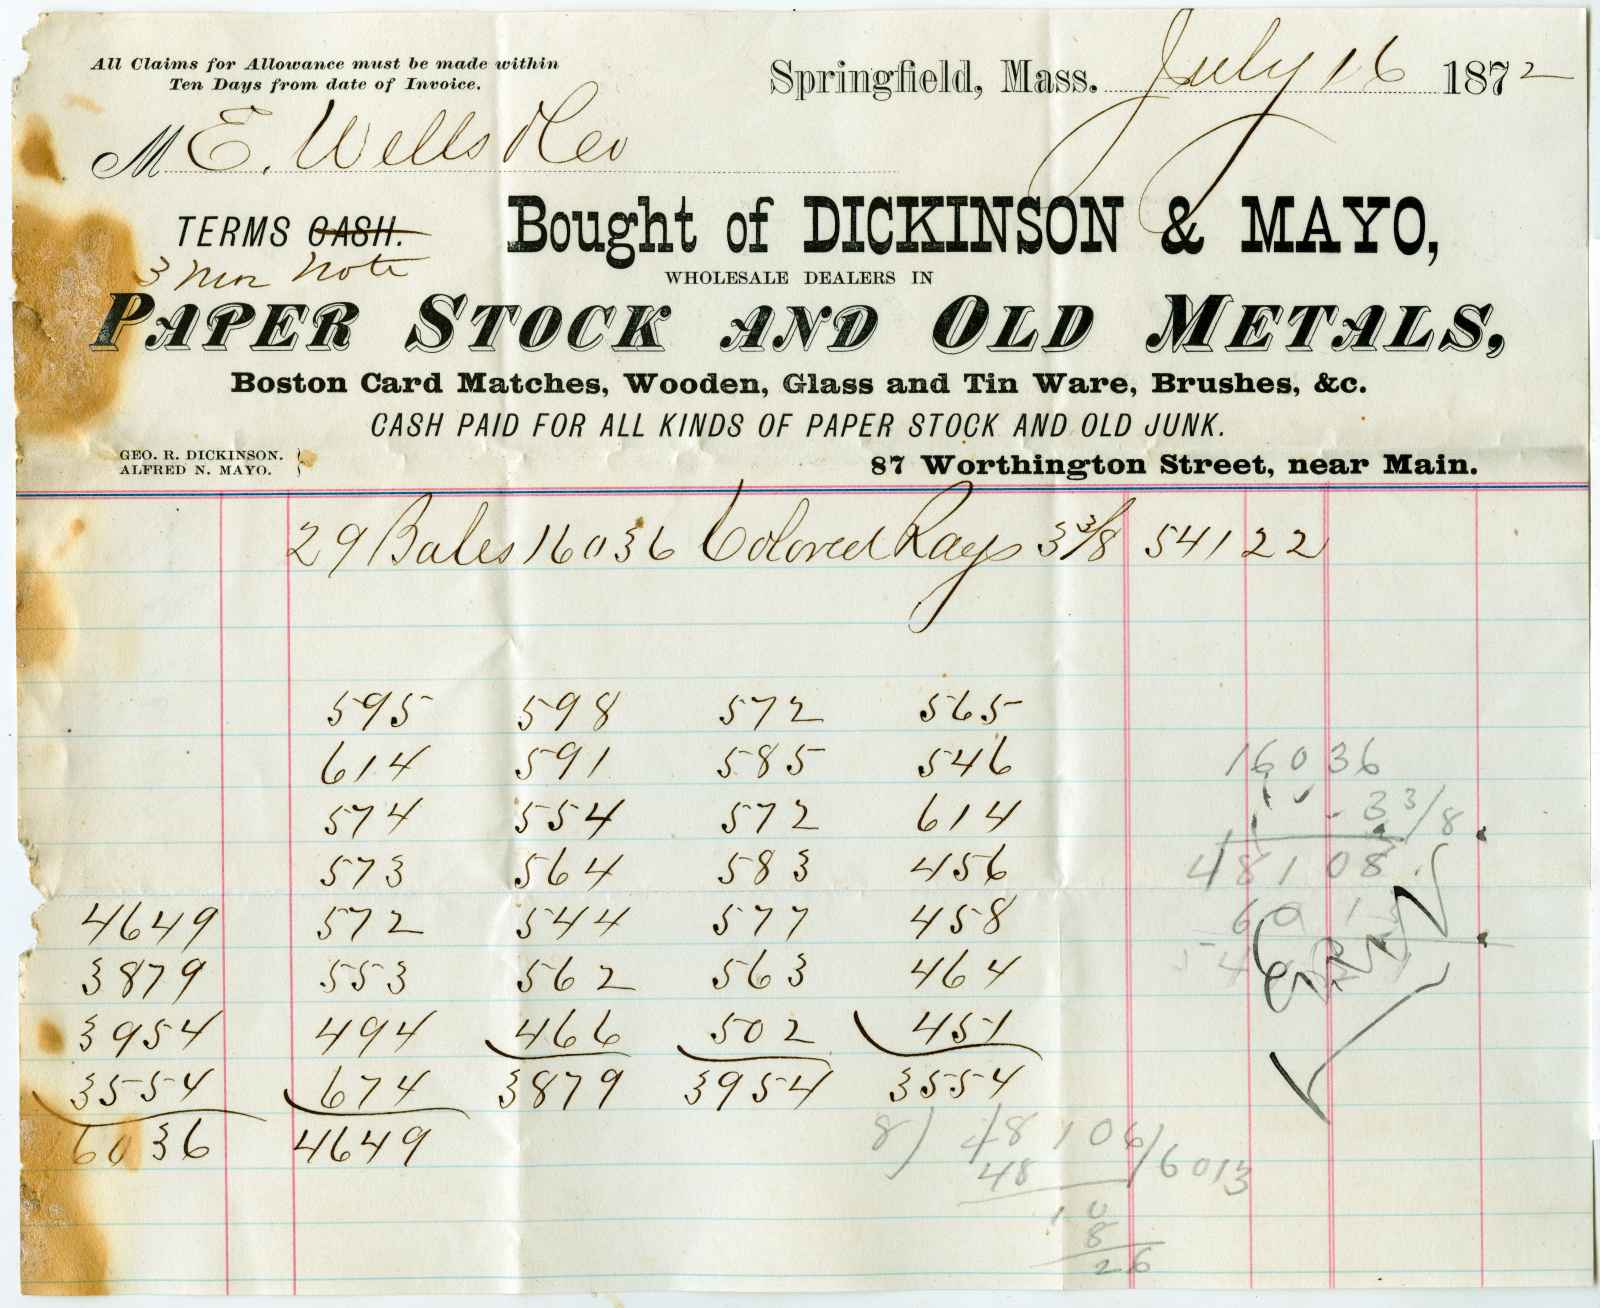 All Claims for Allowance must be made within
Ten Days from date of Invoice.
Springfield, Mass. July 16 1872
M E. Wells & Co
TERMS CASH.
3 mos note
Bought of DICKINSON & MAYO,
WHOLESALE DEALERS IN
PAPER STOCK AND OLD METALS,
Boston Card Matches, Wooden, Glass and Tin Ware, Brushes, &c.
CASH PAID FOR ALL KINDS OF PAPER STOCK AND OLD JUNK.
GEO. R. DICKINSON.
ALFRED N. MAYO.
87 Worthington Street, near Main.
29 Bales 16036 Colored Rags 3 3/8 541 22
595 598 572 565
614 591 585 546
574 554 572 614
573 564 583 456
4649 572 544 577 458
3879 553 562 563 464
3954 494 466 502 451
3554 674 3879 3954 3554
6036 4649
16036
3 3/8
48108
601
8) 48106 / 6013
48
10
8
26